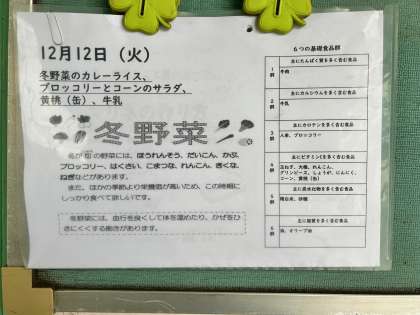 12月12日（火）
冬野菜のカレーライス、
ブロッコリーとコーンのサラダ、
黄桃（缶）、牛乳
冬野菜
冬が旬の野菜には、ほうれんそう、だいこん、かぶ、
ブロッコリー、はくさい、こまつな、れんこん、きくな、
ねぎなどがあります。
また、ほかの季節より栄養価が高いため、この時期に
しっかり食べて欲しいです。
冬野菜には、血行を良くして体を温めたり、かぜをひ
きにくくする働きがあります。
6つの基礎食品群
1群
主にたんぱく質を多く含む食品
牛肉
2群
主にカルシウムを多く含む食品
牛乳
3群
主にカロテンを多く含む食品
人参、ブロッコリー
4群
主にビタミンCを多く含む食品
玉ねぎ、大根、れんこん、
グリンピース、しょうが、にんにく、
コーン、黄桃（缶）
5群
主に炭水化物を多く含む食品
精白米、砂糖
6群
主に脂質を多く含む食品
油、オリーブ油